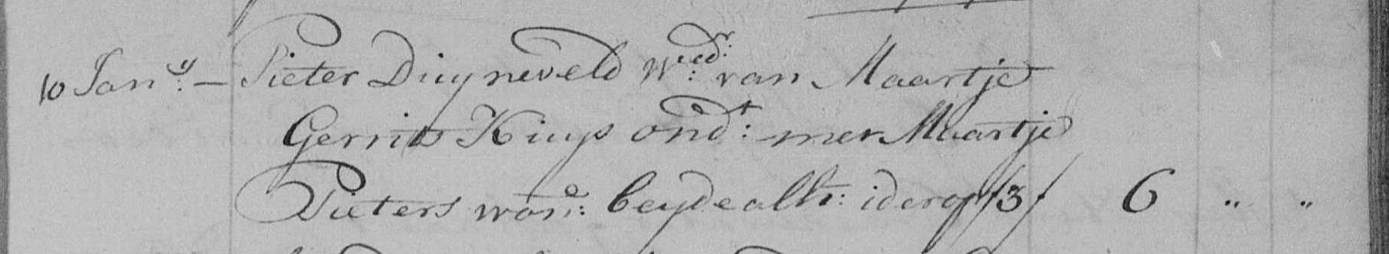 10 Jan:y — Pieter Duyneveld W:edr van Maartje
Gerrits Kuys ond:t met Maartje
Pieters won:e beyde alh: ider op /3/ 6 " "